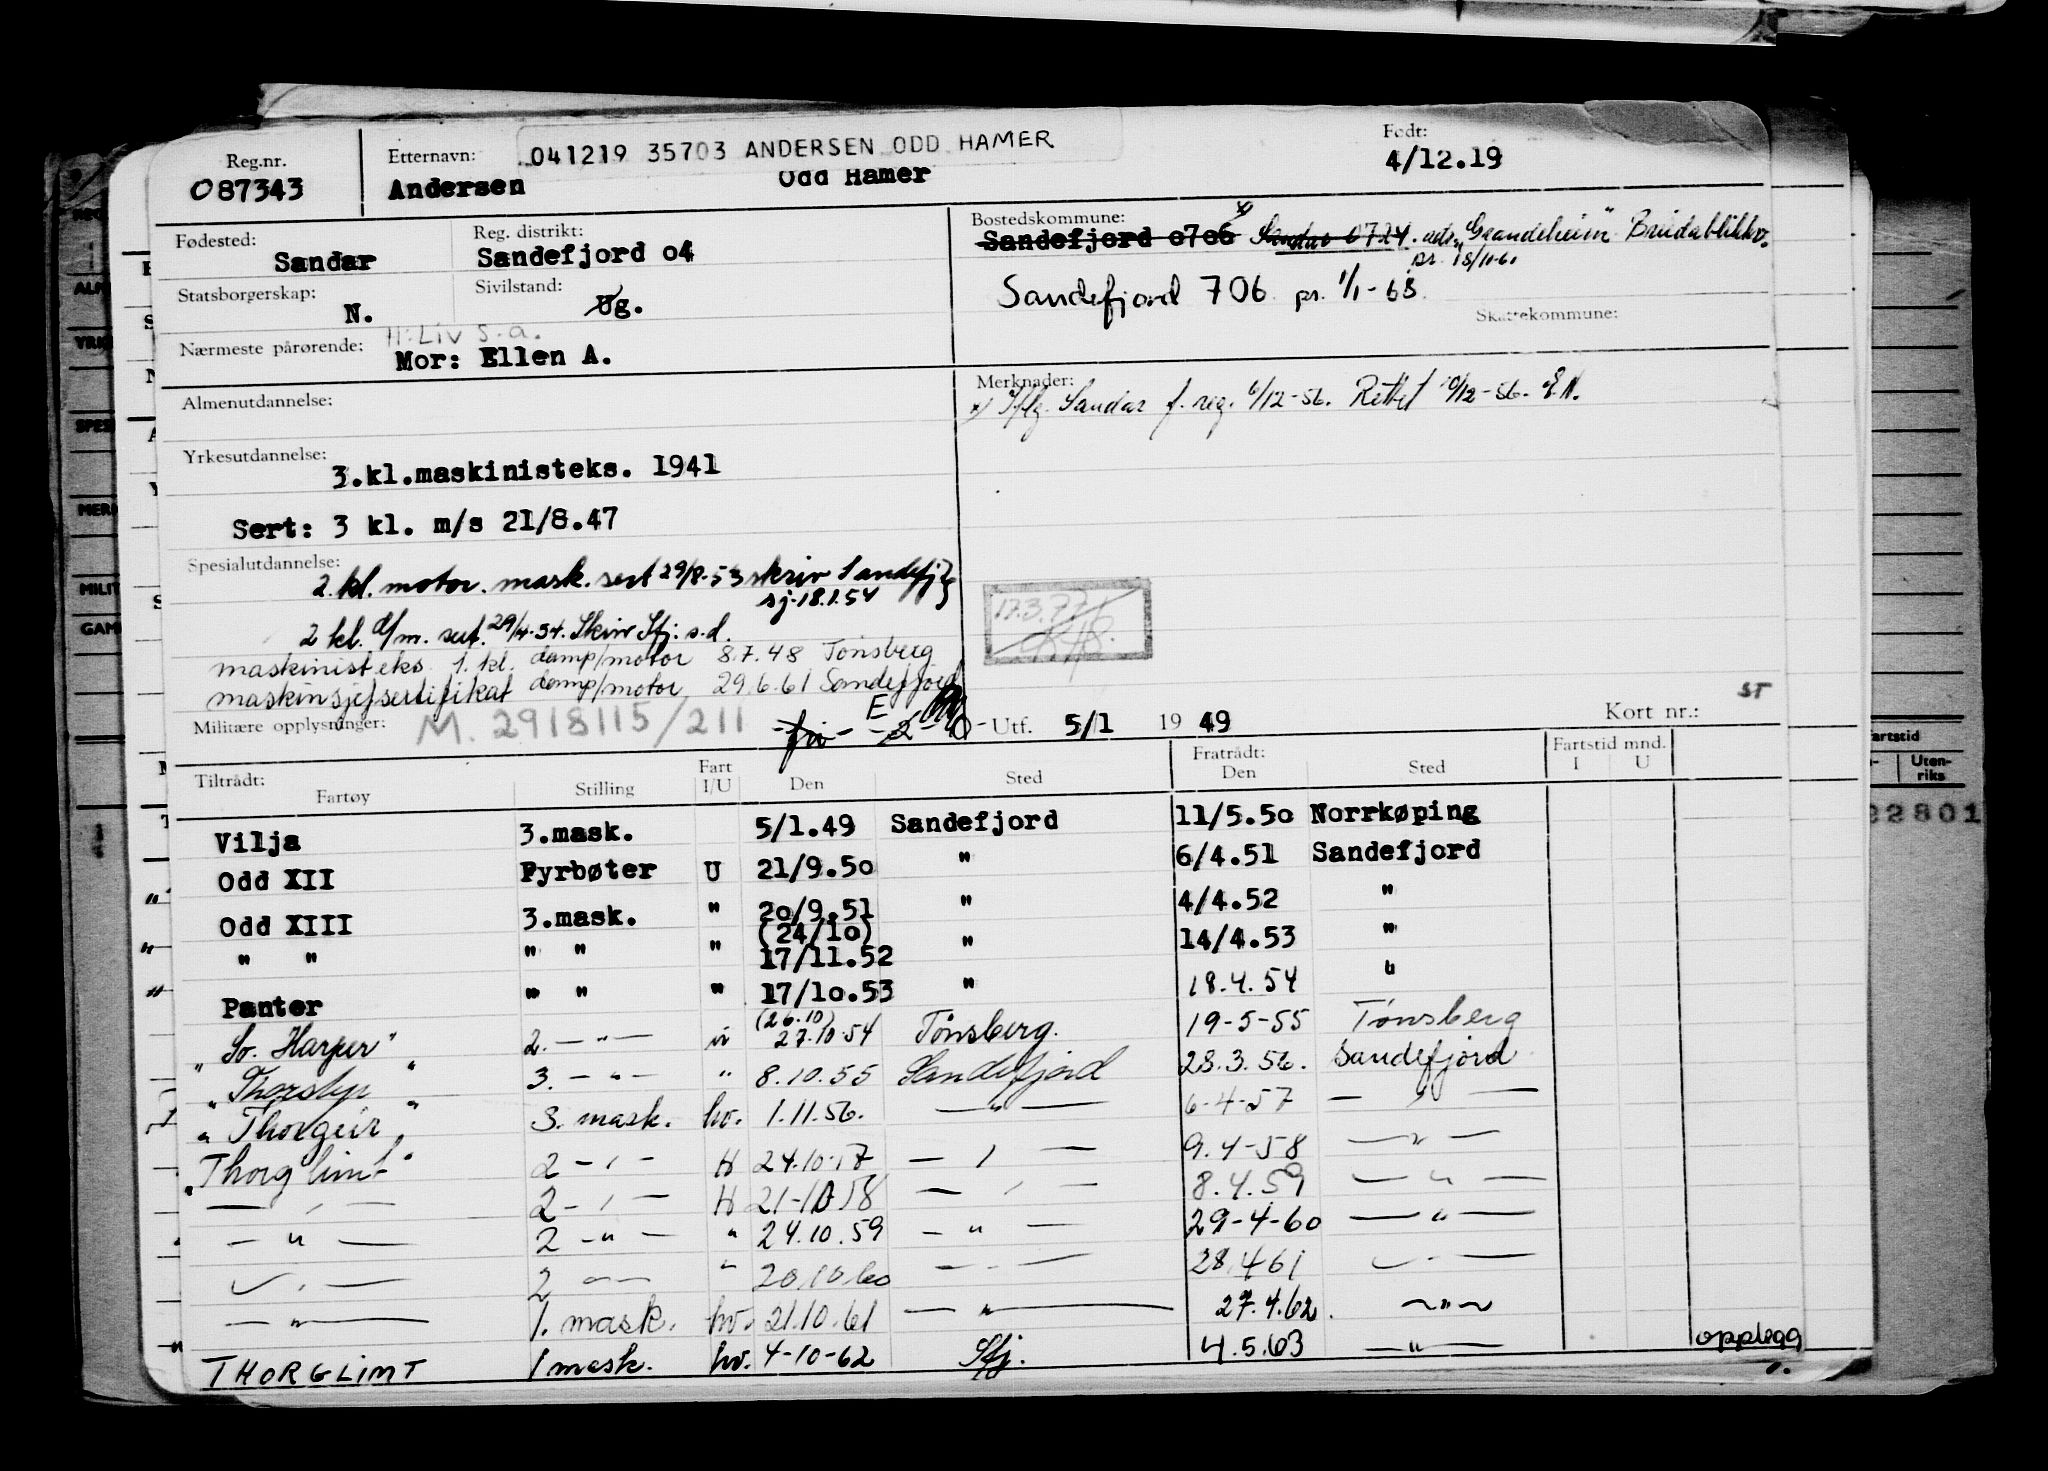 Reg.nr. Etternavn: 041219 35703 ANDERSEN ODD HAMER Født:
087343 Andersen Odd Hamer 4/12.19
Fødested: Sandar Reg. distrikt: Sandefjord o4
Bostedskommune: Sandefjord o7o6 x) Sandar 0724. adr. "Grandeheim" Bruidablikkv.
pr. 18/11-61
Statsborgerskap: N. Sivilstand: Ug.
Sandefjord 706 pr. 1/1-68
Skattekommune:
H: Liv s.a.
Nærmeste pårørende: Mor: Ellen A.
Almenutdannelse:
Merknader:
x) Iflg. Sandar f. reg. 6/12-56. Rettet 10/12-56. E.N.
Yrkesutdannelse: 3.kl.maskinisteks. 1941
Sert: 3 kl. m/s 21/8.47
Spesialutdannelse:
2. kl. motor. mask. sert 29/8-53 skriv Sandefj.
sj. 18.1.54
2 kl. d/m. sert. 29/4-54. Skriv Sfj. s.d.
maskinisteks 1. kl. damp/motor 8.7.48 Tønsberg
maskinsjefsertifikat damp/motor 29.6.61 Sandefjord
17.3.72
ST
Militære opplysninger: M. 2918115/211 E - Utf. 5/1 19 49 Kort nr.:
Tiltrådt: Fartøy Stilling Fart I/U Den Sted Fratrådt: Den Sted Fartstid mnd. I U
Vilja 3.mask. 5/1.49 Sandefjord 11/5.50 Norrkøping
Odd XII Fyrbøter U 21/9.50 " 6/4.51 Sandefjord
Odd XIII 3.mask. " 20/9.51 " 4/4.52 "
(24/10)
" " " " " 17/11.52 " 14/4.53 "
Panter " " " 17/10.53 " 18.4.54 "
(26.10)
"So. Harper" 2. — " — " 27.10.54 Tønsberg. 19-5-55 Tønsberg
"Thorslyr" 3. — " — " 8.10.55 Sandefjord 28.3.56. Sandefjord
"Thorgeir" 3. mask. hv. 1.11.56. — " — 6-4-57 — " —
"Thorglimt" 2 — " — H 24.10.57 — " — 9.4-58 — " —
— " — 2 — " — H 21-10 58 — " — 8.4.59 — " —
— " — 2 — " — " 24.10.59 — " — 29-4-60 — " —
— " — 2 — " — " 20.10.60 — " — 28.4 61 — " —
— " — 1. mask. hv. 21.10.61 — " — 27.4.62. — " —
THORGLIMT 1 mask. hv. 4-10-62 Sfj. 4.5.63 — " — opplegg
Fartstid
Uten-
riks
22801